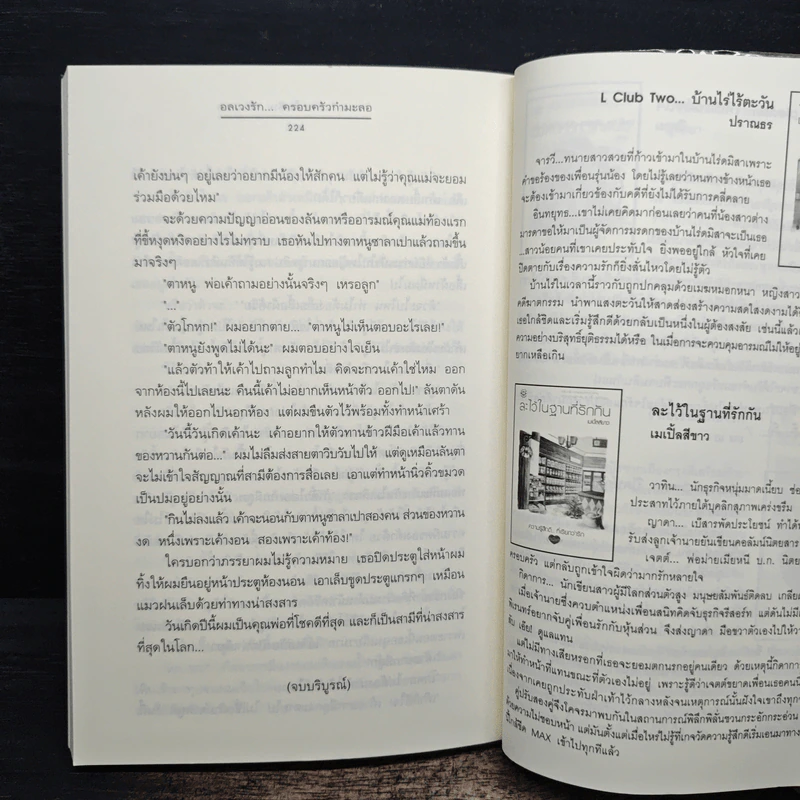 อลเวงรัก... ครอบครัวกำมะลอ
224
เค้ายังบ่นๆ อยู่เลยว่าอยากมีน้องให้สักคน แต่ไม่รู้ว่าคุณแม่จะยอม
ร่วมมือด้วยไหม"
จะด้วยความปัญญาอ่อนของลันตาหรืออารมณ์คุณแม่ท้องแรก
ที่ขี้หงุดหงิดอย่างไรไม่ทราบ เธอหันไปทางตาหนูซาลาเปาแล้วถามขึ้น
มาจริงๆ
"ตาหนู พ่อเค้าถามอย่างนั้นจริงๆ เหรอลูก"
"..."
"ตัวโกหก!" ผมอยากตาย... "ตาหนูไม่เห็นตอบอะไรเลย!"
"ตาหนูยังพูดไม่ได้นะ" ผมตอบอย่างใจเย็น
"แล้วตัวทำให้เค้าไปถามลูกทำไม คิดจะกวนเค้าใช่ไหม ออก
จากห้องนี้ไปเลยนะ คืนนี้เค้าไม่อยากเห็นหน้าตัว ออกไป!" ลันตาดัน
หลังผมให้ออกไปนอกห้อง แต่ผมขืนตัวไว้พร้อมทั้งทำหน้าเศร้า
"วันนี้วันเกิดเค้านะ เค้าอยากให้ตัวทานข้าวฝีมือเค้าแล้วทาน
ของหวานกันต่อ..." ผมไม่ลืมส่งสายตาวิบวับไปให้ แต่ดูเหมือนลันตา
จะไม่เข้าใจสัญญาณที่สามีต้องการสื่อเลย เอาแต่ทำหน้านิ่วคิ้วขมวด
เป็นปมอยู่อย่างนั้น
"กินไม่ลงแล้ว เค้าจะนอนกับตาหนูซาลาเปาสองคน ส่วนของหวาน
งด หนึ่งเพราะเค้างอน สองเพราะเค้าท้อง!"
ใครบอกว่าภรรยาผมไม่รู้ความหมาย เธอปิดประตูใส่หน้าผม
ทิ้งให้ผมยืนอยู่หน้าประตูห้องนอน เอาเล็บขูดประตูแกรกๆ เหมือน
แมวฝนเล็บด้วยท่าทางน่าสงสาร
วันเกิดปีนี้ผมเป็นคุณพ่อที่โชคดีที่สุด และก็เป็นสามีที่น่าสงสาร
ที่สุดในโลก...
(จบบริบูรณ์)
L Club Two... บ้านไร่ไร้ตะวัน
ปราณธร
จารวี...ทนายสาวสวยที่ก้าวเข้ามาในบ้านไร่ดมิสาเพราะ
คำขอร้องของเพื่อนรุ่นน้อง โดยไม่รู้เลยว่าหนทางข้างหน้าเธอ
จะต้องเข้ามาเกี่ยวข้องกับคดีที่ยังไม่ได้รับการคลี่คลาย
อินทยุทธ...เขาไม่เคยคิดมาก่อนเลยว่าคนที่น้องสาวต่าง
มารดาขอให้มาเป็นผู้จัดการมรดกของบ้านไร่ดมิสาจะเป็นเธอ
...สาวน้อยคนที่เขาเคยประทับใจ ยิ่งพออยู่ใกล้ หัวใจที่เคย
ปิดตายกับเรื่องความรักก็ยิ่งสั่นไหวโดยไม่รู้ตัว
บ้านไร่ในเวลานี้ราวกับถูกปกคลุมด้วยเมฆหมอกหนา หญิงสาว
คดีฆาตกรรม นำพาแสงตะวันให้สาดส่องสร้างความสดใสงดงามได้
เธอใกล้ชิดและเริ่มรู้สึกดีด้วยกลับเป็นหนึ่งในผู้ต้องสงสัย เช่นนี้แล้ว
ความอย่างบริสุทธิ์ยุติธรรมได้หรือ ในเมื่อการจะควบคุมอารมณ์ไม่ให้
ยากเหลือเกิน
ละไว้ในฐานที่รักกัน
เมเปิ้ลสีขาว
ละไว้ในฐานที่รักกัน
เมเปิ้ลสีขาว
วาทิน... นักธุรกิจหนุ่มมาดเนี้ยบ
ประสาทไว้ภายใต้บุคลิกสุภาพเคร่งขรึม
ญาดา... เบ๊สารพัดประโยชน์ ทำได้
รับส่งลูกเจ้านายยันเขียนคอลัมน์นิตยสาร
เจตต์... พ่อม่ายเมียหนี บ.ก. นิตย
ครอบครัว แต่กลับถูกเข้าใจผิดว่ามากรักหลายใจ
กิดาการ... นักเขียนสาวผู้มีโลกส่วนตัวสูง มนุษยสัมพันธ์ติดลบ
เมื่อเจ้านายซึ่งควบตำแหน่งเพื่อนสนิทคิดจับธุรกิจรีสอร์ท แต่ดันไม่
อยากจับคู่เพื่อนรักกับหุ้นส่วน จึงส่งญาดา มือขวาตัวเองไปให้
เอ๊ย! ดูแลแทน
แต่ไม่มีทางเสียหรอกที่เธอจะยอมตกนรกอยู่คนเดียว ด้วยเหตุนี้กิดาการ
มาให้ทำหน้าที่แทนขณะที่ตัวเองไม่อยู่ เพราะรู้ดีว่าเจตต์ขยาดเพื่อนเธอคน
เนื่องจากเคยถูกประทับฝ่าเท้าไว้กลางหลังจนเหตุการณ์นั้นฝังใจเขาถึงทุก
คู่ปรับสองคู่จึงโคจรมาพบกันในสถานการณ์พิลึกพิลั่นชวนกระอักกระอ่วน
ด้วยความไม่ชอบหน้า แต่มันตั้งแต่เมื่อไหร่ไม่รู้ที่เกจวัดความรู้สึกดีเริ่มเอนมาทาง
ใกล้ขีด MAX เข้าไปทุกทีแล้ว